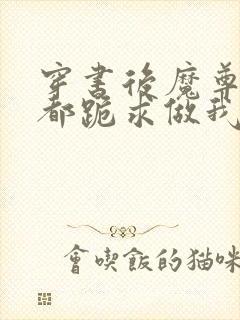 穿書後魔尊
都跪求做我
會喫飯的猫咪